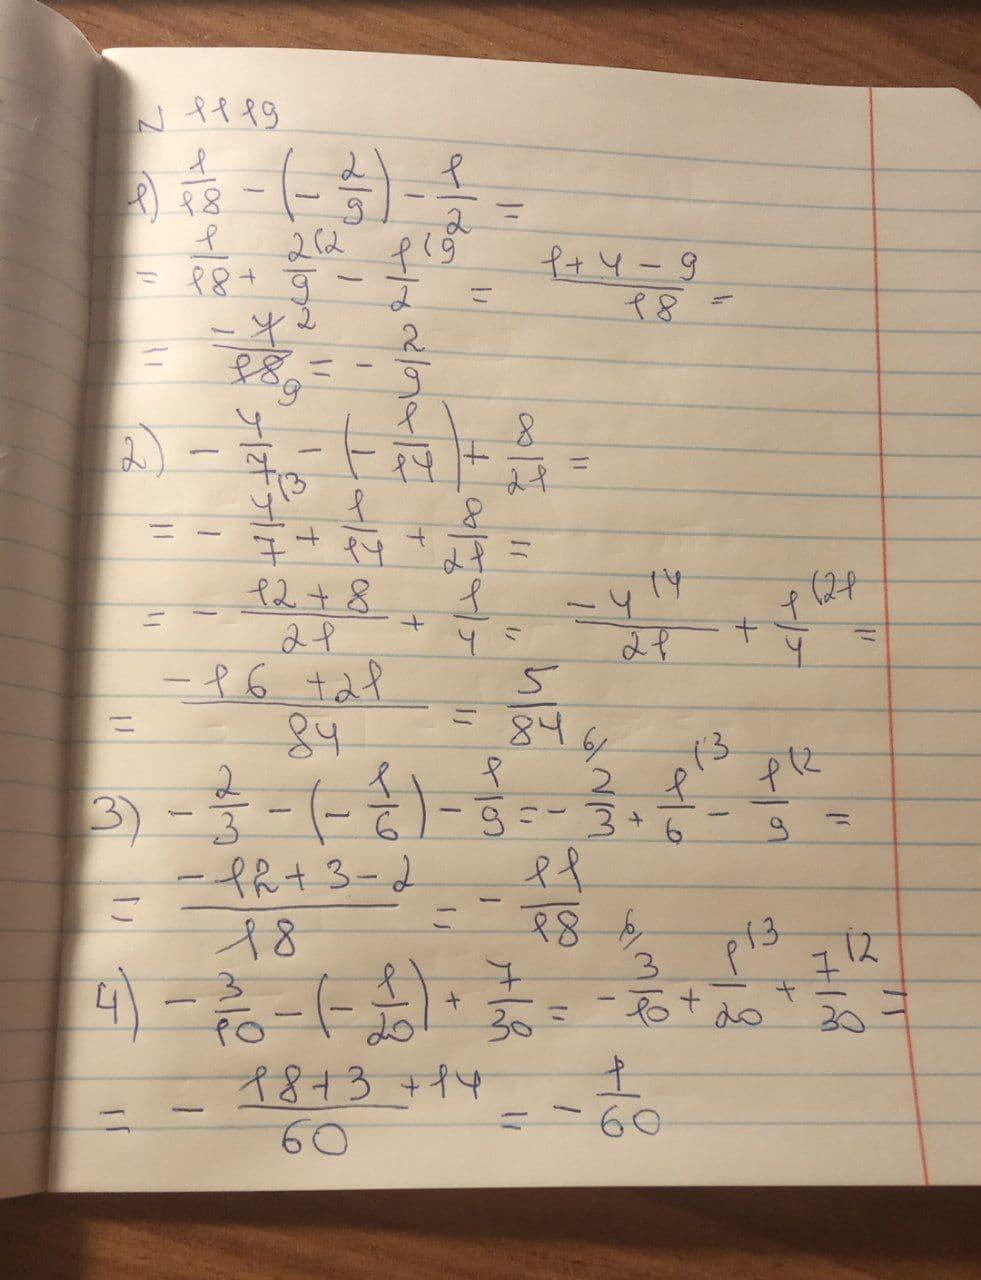 N 1119
1) 1/18 - (- 2/9) - 1/2 =
= 1/18 + 2(2/9 - 1(9/2 = 1+4-9/18 =
= -4 2/18 9 = - 2/9
2) - 4/7 - (- 1/14) + 8/21 =
= - 4(3/7 + 1/14 + 8/21 =
= - 12+8/21 + 1/4 = -4(4/21 + 1(21/4 =
= -16 +21/84 = 5/84
3) - 2/3 - (- 1/6) - 1/9 = - 6/2/3 + 1(3/6 - 1(2/9 =
= -12+3-2/18 = - 11/18
4) - 3/10 - (- 1/20) + 7/30 = - 6/3/10 + 1(3/20 + 7(2/30 =
= - 18+3+14/60 = - 1/60